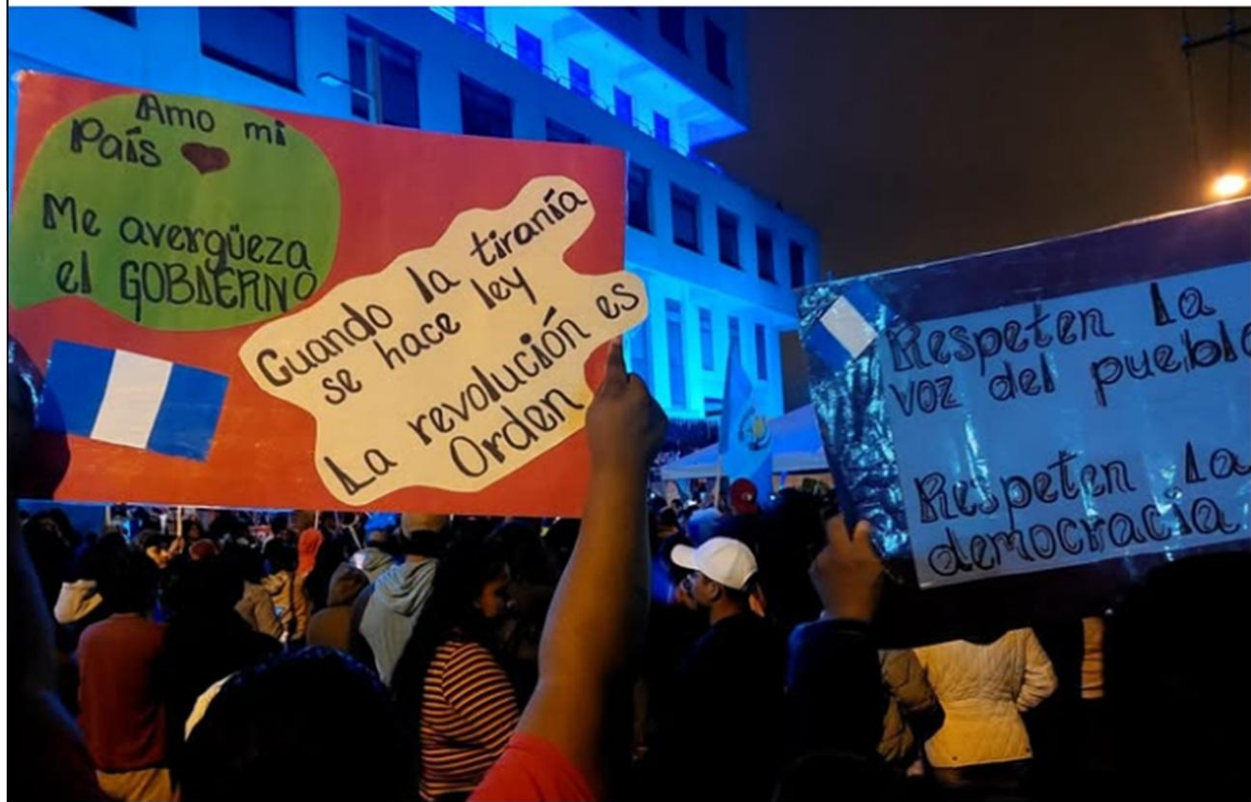 Amo mi
País
Me avergüeza
el GOBIERNO
Cuando la tiranía
se hace ley
La revolución es
Orden
Respeten la
voz del pueblo
Respeten la
democracia